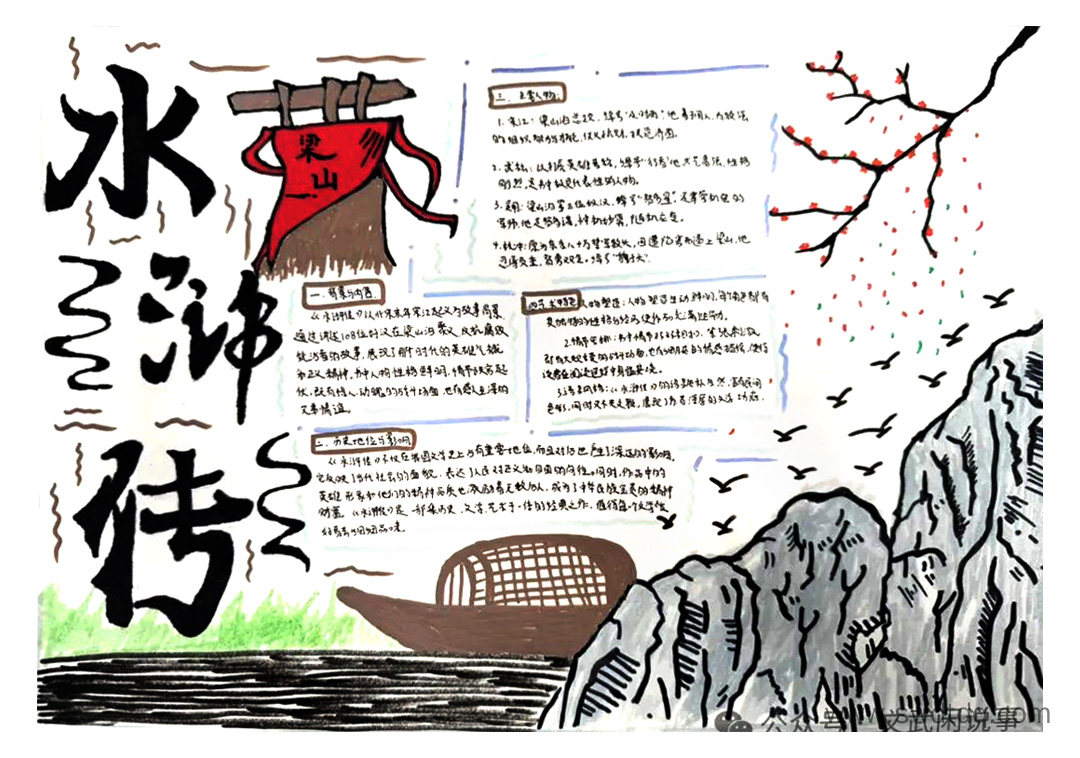 水浒传
梁山
三、主要人物:
1. 宋江：梁山泊总投，绰号"及时雨"他善于用人，为政治
的组织
2. 武松：以打虎英雄著称，绰号"行者"他武艺高强，性格
刚烈，是书中最具代表性的人物。
3. 吴用：梁山泊第三位好汉，绰号"智多星"，是掌管机密的
军师，他足智多谋，神机妙算，
4. 林冲：原为东京八十万禁军教头，因遭陷害而逼上梁山，他
忍辱负重，智勇双全。绰号"豹子头"。
一、背景与内容
《水浒传》以北宋末年宋江起义为故事背景
通过讲述108位好汉在梁山泊聚义、反抗腐败
统治者的故事，展现了那个时代的英雄气概
和正义精神，书中人物性格鲜明，情节跌宕起
伏，既有惊人动魄的战斗场面，也有感人至深的
兄弟情谊。
四、艺术特色
人物塑造：人物塑造生动鲜明，每个角色都有
其独特的性格与经历使作品充满生动力。
2.情节
都有大起大落的战斗场面，也有细腻的情感描绘，使得
读者在阅读过程中身临其境。
3.语言风格：《水浒传》的语言
色彩，同时又不失文雅，展现了作者深厚的文学功底。
二、历史地位与影响
《水浒传》不仅在我国文学史上占有重要地位，而且对后世产生了深远的影响，
它反映了当代社会的面貌，表达了人民对正义和自由的向往。同时，作品中的
英雄形象和他们的精神品质也激励着无数后人，成为了中华民族宝贵的精神
财富。《水浒传》是一部集历史、文学、艺术于一体的经典之作，值得每一个文学
公众号 文武闲说事